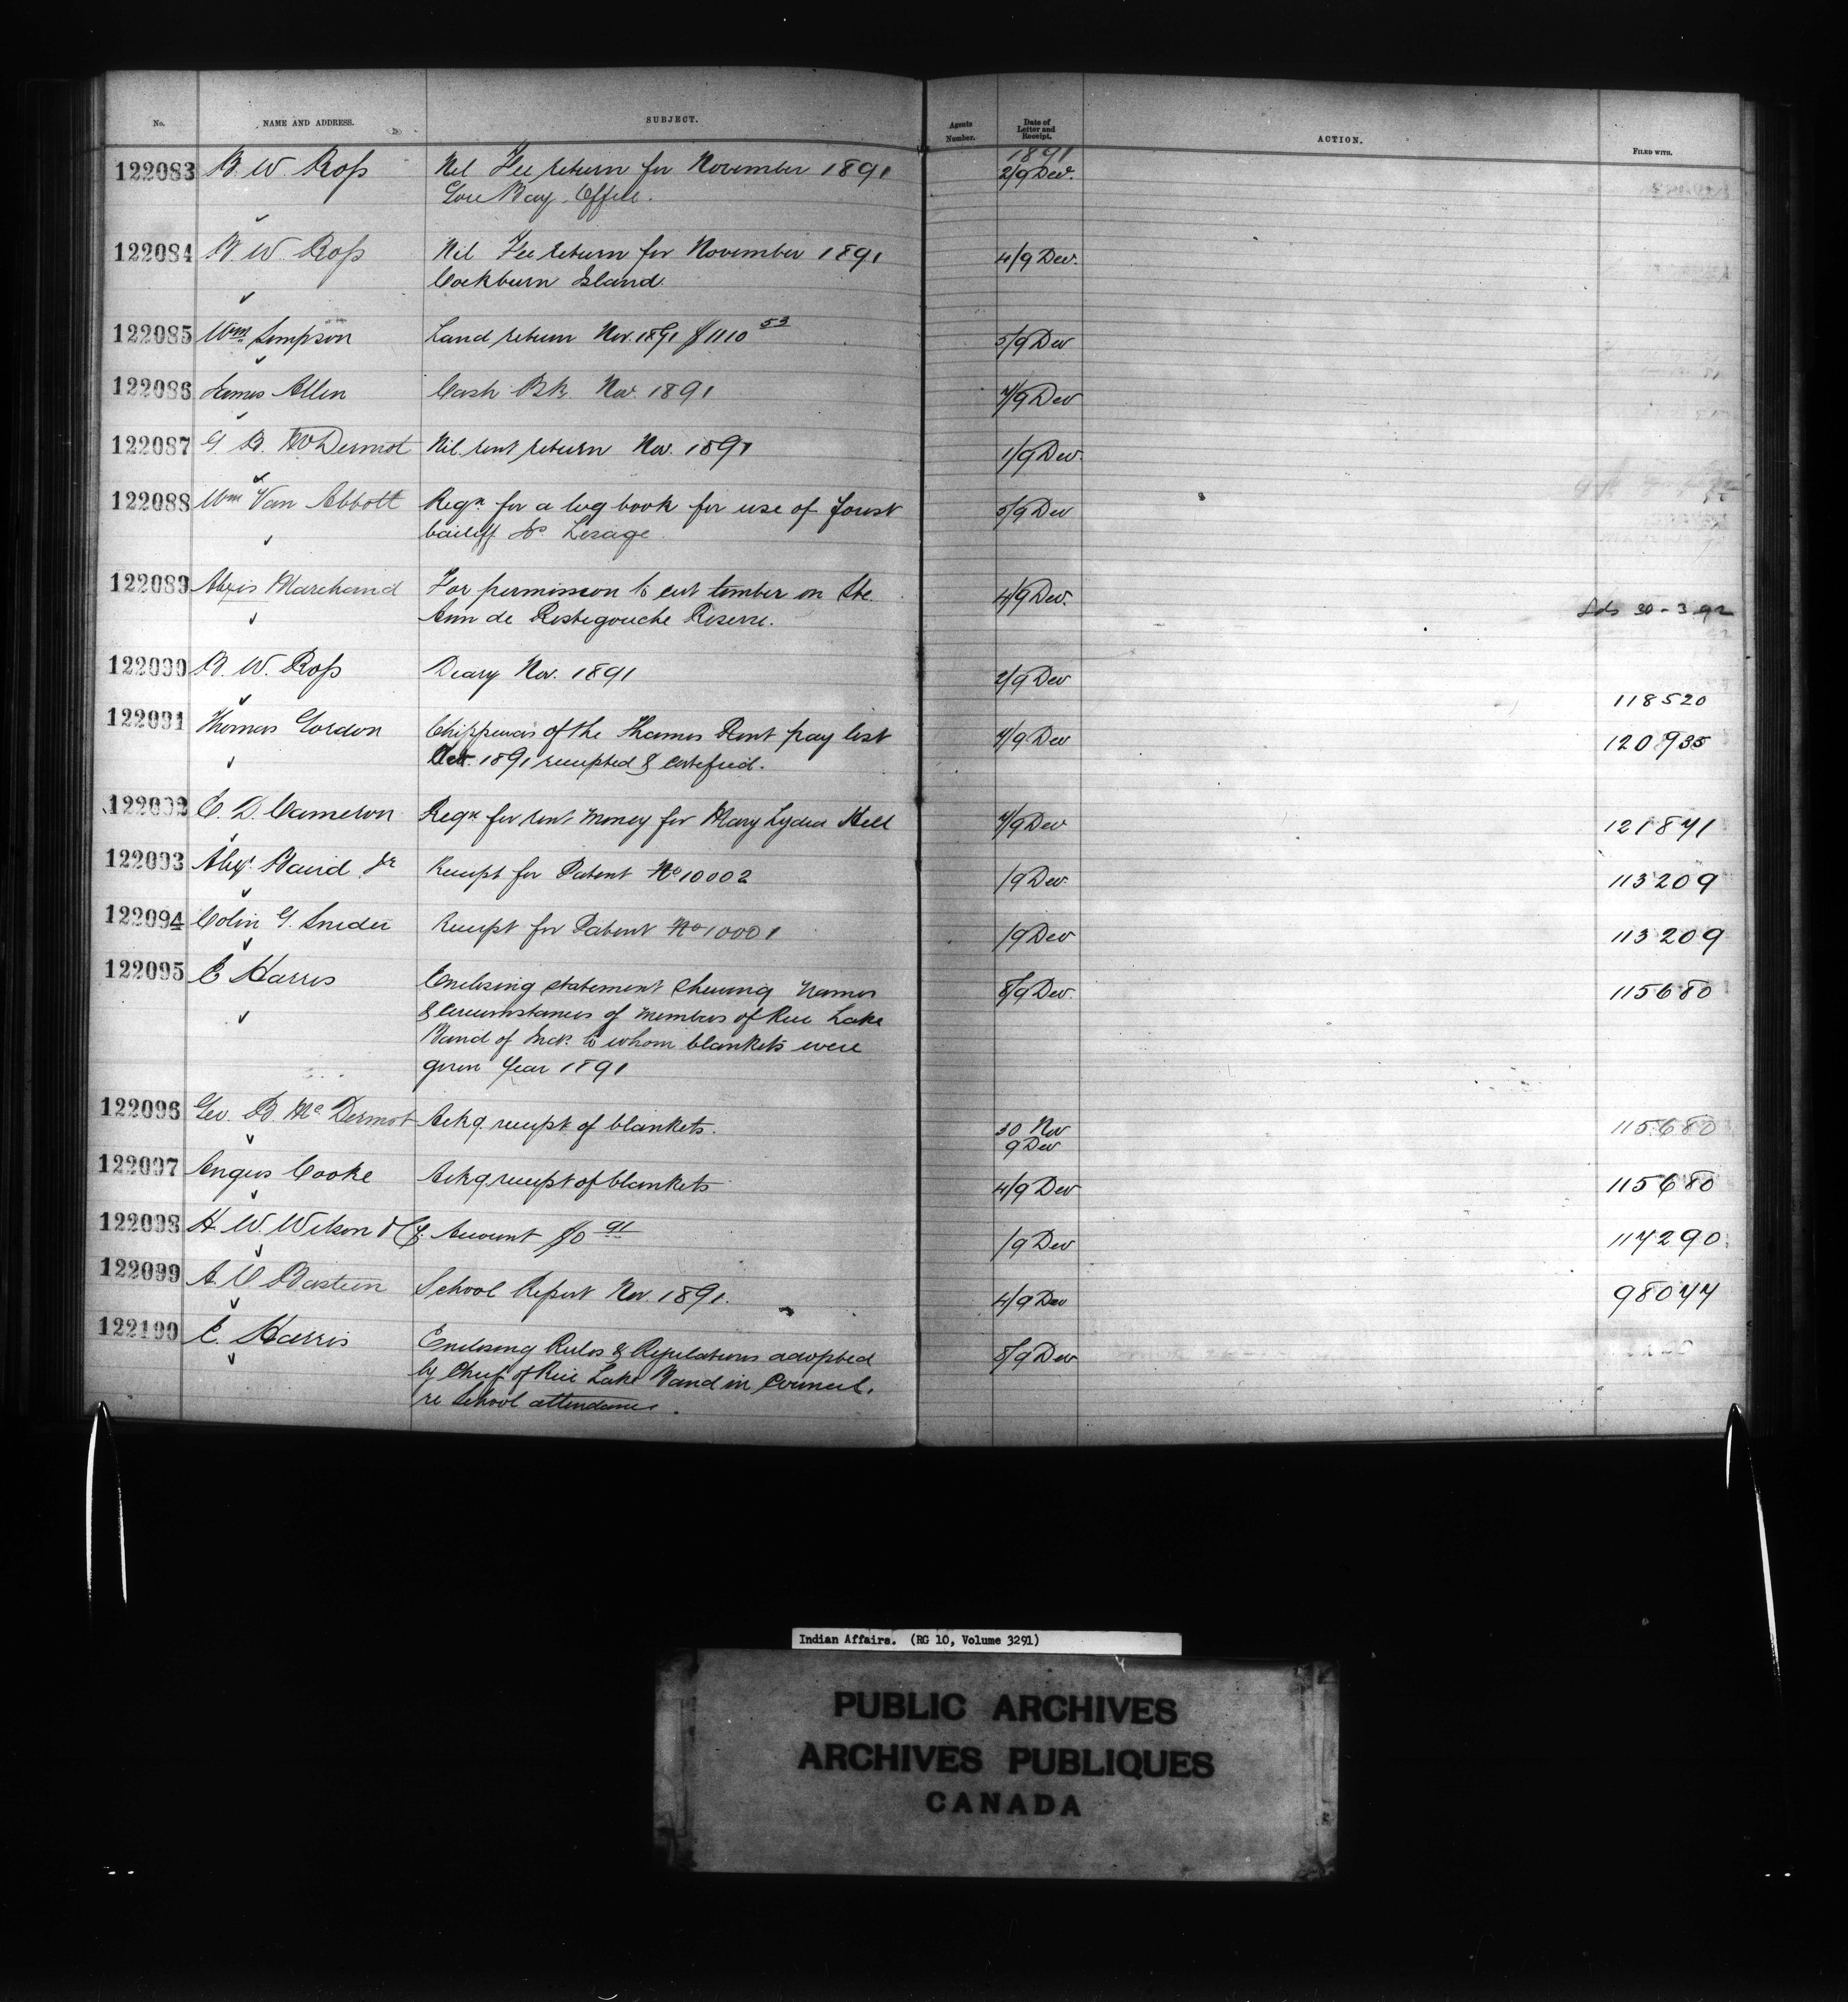 No. NAME AND ADDRESS. SUBJECT. Agents Number. Date of Letter and Receipt. ACTION. FILED WITH.
1891
122083 B. W. Ross Nil Fee return for November 1891 2/9 Dec.
Gore Bay Office.
122084 B. W. Ross Nil Fee return for November 1891 4/9 Dec.
Cockburn Island
122085 Wm Simpson Land return Nov. 1891 $1110 53 5/9 Dec
122086 James Allen Cash Bk. Nov. 1891 7/9 Dec
122087 G. B. McDermot Nil rent return Nov. 1891 1/9 Dec.
122088 Wm Van Abbott Reqn for a log book for use of forest 5/9 Dec
bailiff Lesage
122089 Alexis Marchand For permission to cut timber on Ste. 4/9 Dec. Lds 30-3.92
Ann de Restigouche Reserve.
122090 B. W. Ross Diary Nov. 1891 2/9 Dec 118520
122091 Thomas Gordon Chippewas of the Thames Rent pay list 7/9 Dec 120935
Oct. 1891 receipted & certified.
122092 E. D. Cameron Reqn for rent money for Mary Lydia Hill 7/9 Dec 121871
122093 Alex. Baird Jr Receipt for Patent No 10002 /9 Dec 113209
122094 Colin G. Snider Receipt for Patent No 10001 /9 Dec 113209
122095 E Harris Enclosing statement shewing names 8/9 Dec. 115680
& circumstances of members of Rice Lake
Band of Inds. to whom blankets were
given year 1891
122096 Geo. B. McDermot Ackg receipt of blankets. 30 Nov 115680
9 Dec
122097 Angus Cooke Ackg receipt of blankets 4/9 Dec 115680
122098 H. W. Wilson & Co. Account $0 91 /9 Dec 117290
122099 A. O Bastien School Report Nov. 1891. 4/9 Dec 98077
122100 E. Harris Enclosing Rules & Regulations adopted 8/9 Dec
by Chief of Rice Lake Band in Council.
re School attendance.
Indian Affairs. (RG 10, Volume 3291)
PUBLIC ARCHIVES
ARCHIVES PUBLIQUES
CANADA